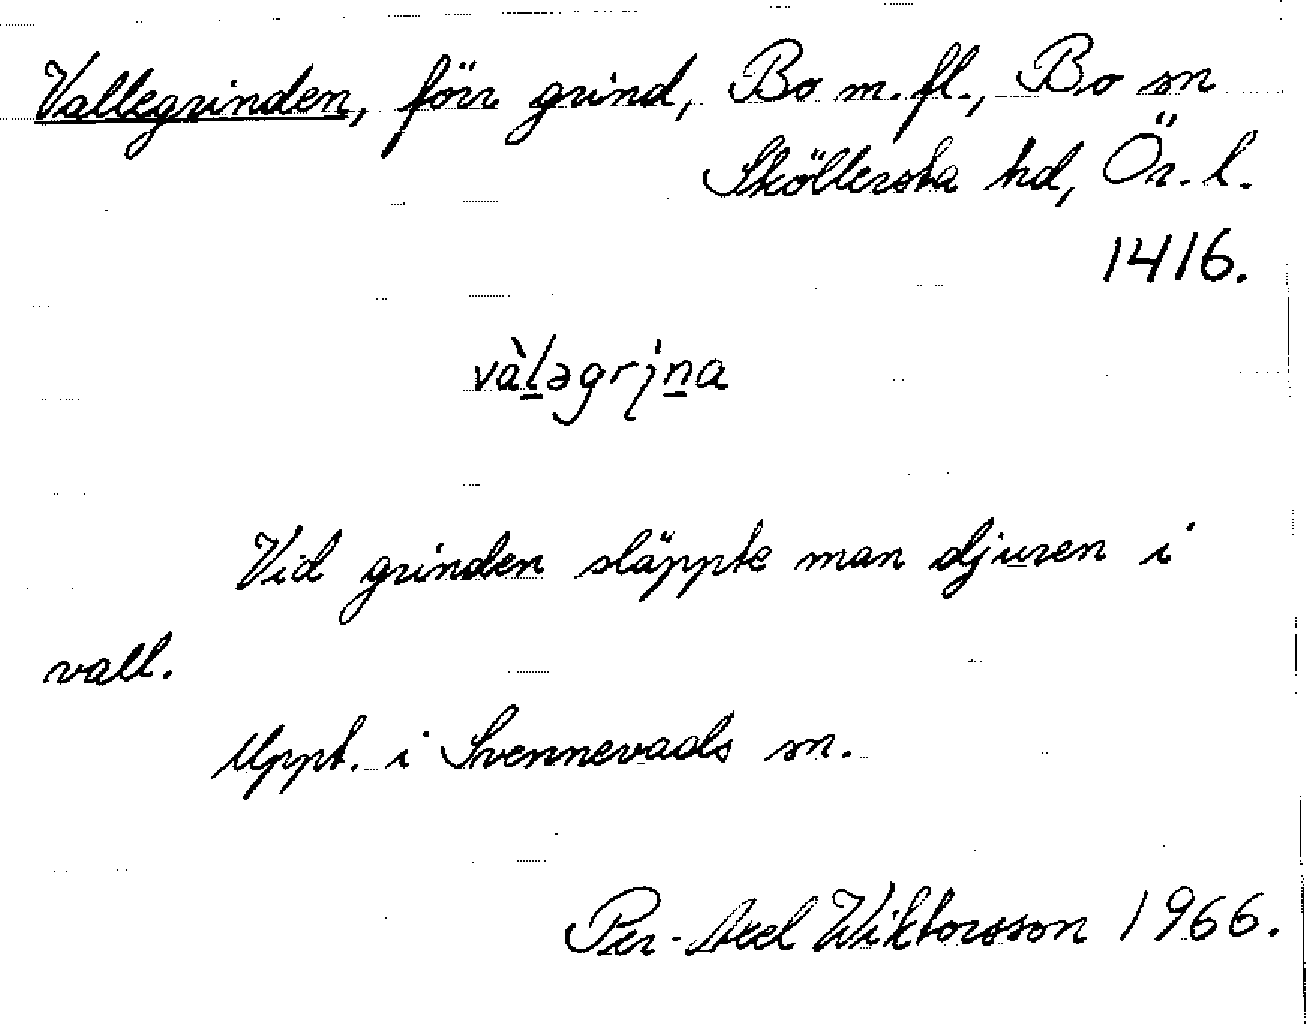 Vallegrinden, förr grind, Bo m.fl., Bo sn
Sköllersta hd, Ör. l.
1416.
và̱lǝgrı̣n̲a
Vid grinden släppte man djuren i
vall.
Uppt. i Svennevads sn.
Per-Axel Wiktorsson 1966.